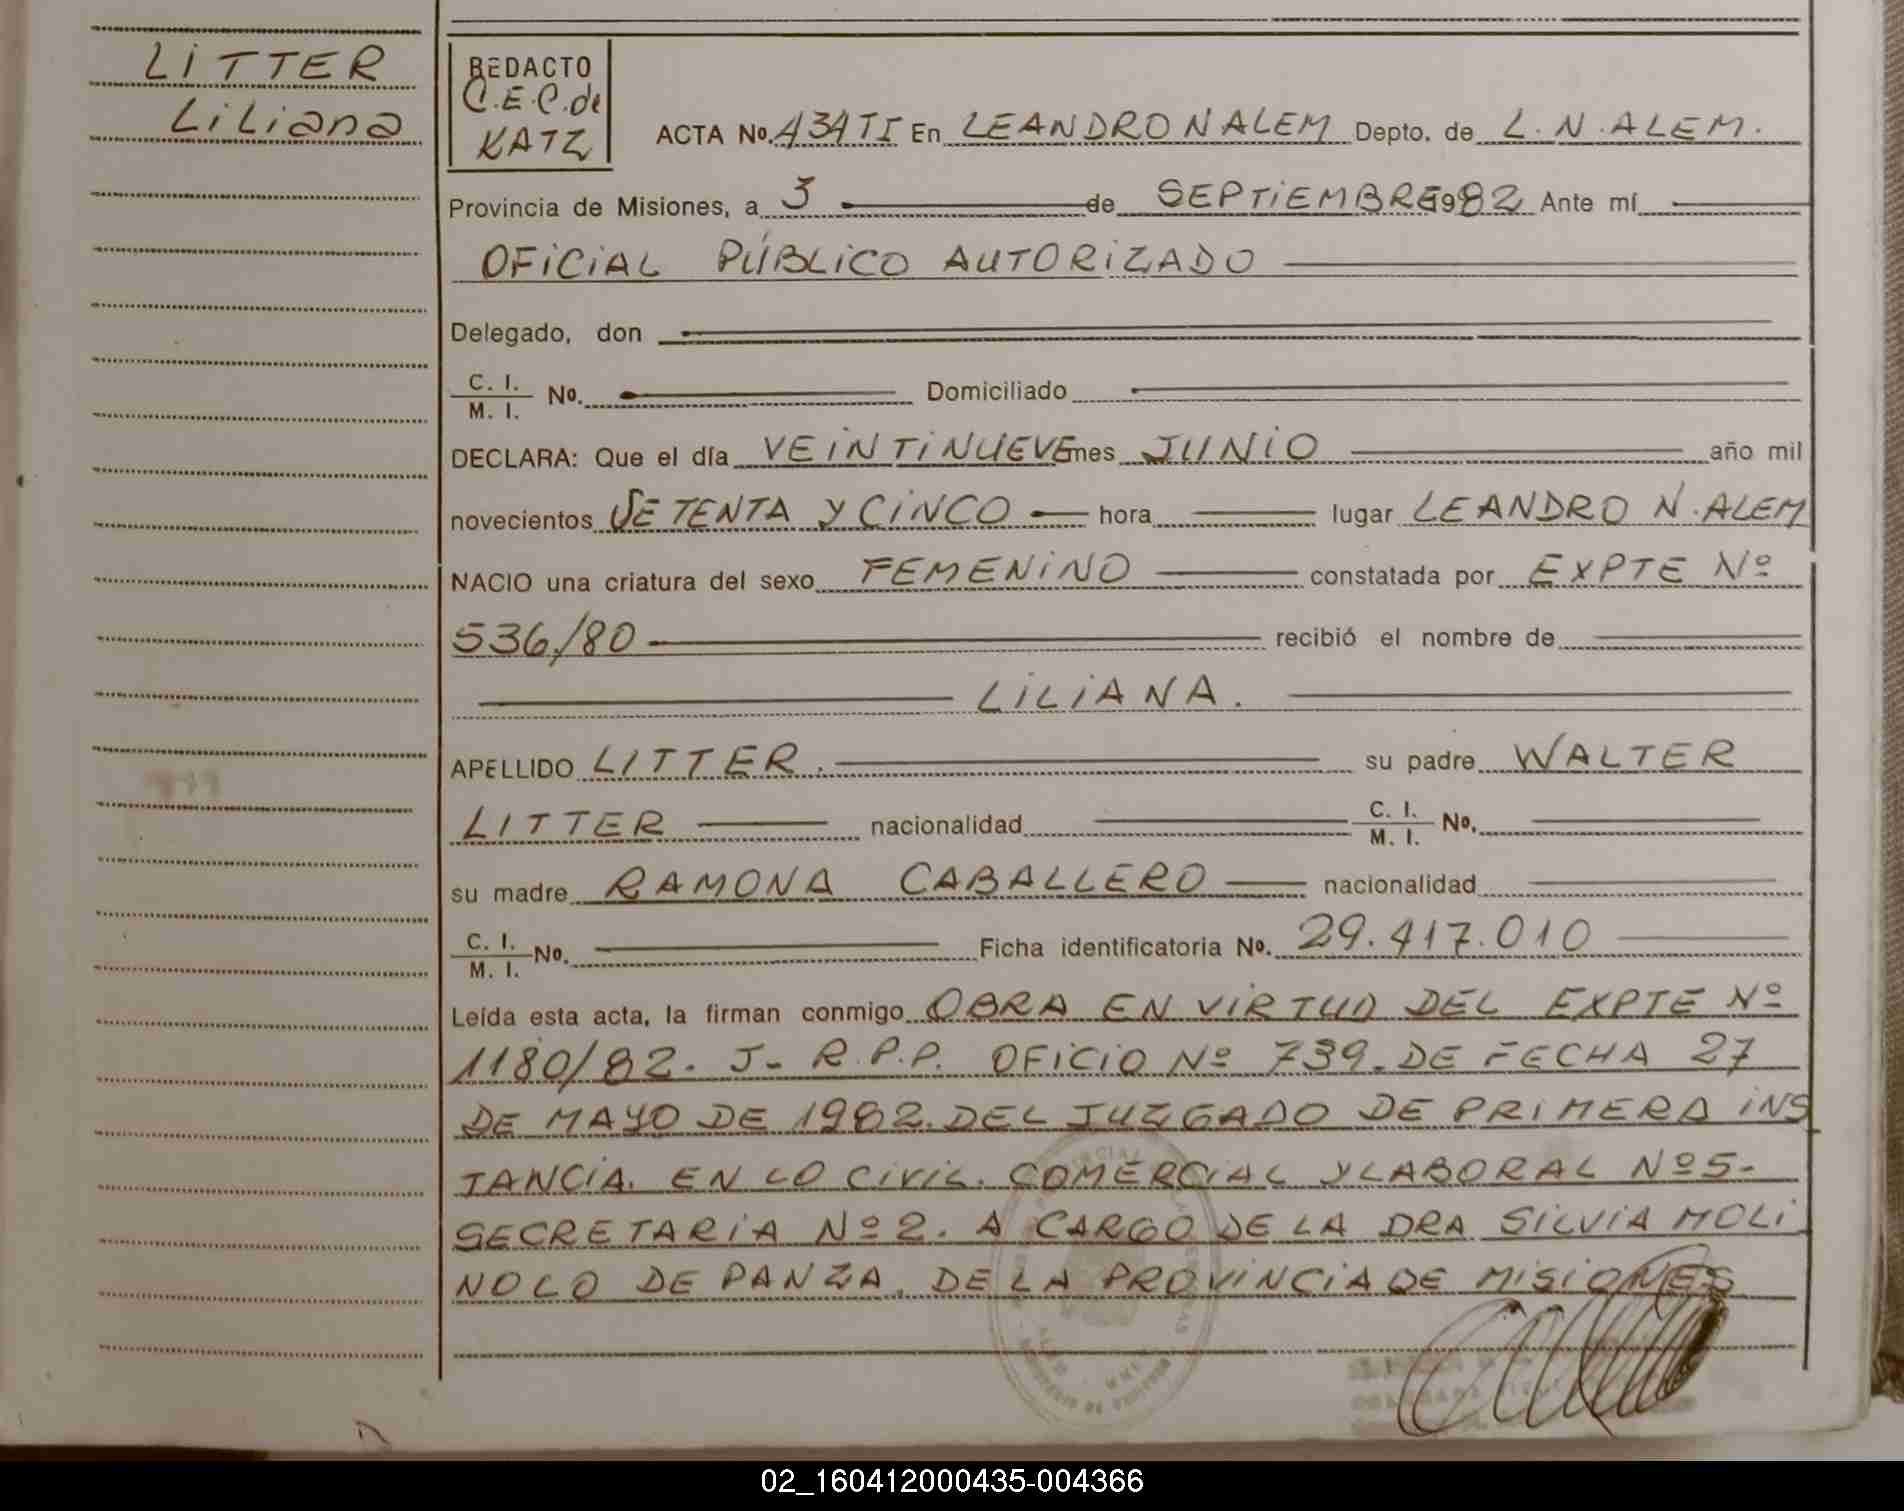 LITTER
Liliana
REDACTO
C.E.C. de
KATZ
ACTA No. 434 TI En LEANDRO N ALEM Depto. de L. N. ALEM.
Provincia de Misiones, a 3 de SEPTIEMBRE 1982 Ante mí
OFICIAL PÚBLICO AUTORIZADO
Delegado, don
C. I.
M. I. No. Domiciliado
DECLARA: Que el día VEINTINUEVE mes JUNIO año mil
novecientos SETENTA Y CINCO hora lugar LEANDRO N. ALEM
NACIO una criatura del sexo FEMENINO constatada por EXPTE Nº
536/80 recibió el nombre de
LILIANA.
APELLIDO LITTER. su padre WALTER
LITTER nacionalidad C. I. M. I. No.
su madre RAMONA CABALLERO nacionalidad
C. I. M. I. No. Ficha identificatoria No. 29.417.010
Leída esta acta, la firman conmigo OBRA EN VIRTUD DEL EXPTE Nº
1180/82. J- R.P.P. OFICIO Nº 739. DE FECHA 27
DE MAYO DE 1982. DEL JUZGADO DE PRIMERA INS
TANCIA. EN LO CIVIL. COMERCIAL Y LABORAL Nº 5-
SECRETARIA Nº 2. A CARGO DE LA DRA SILVIA MOLI
NOLO DE PANZA. DE LA PROVINCIA DE MISIONES
02_160412000435-004366